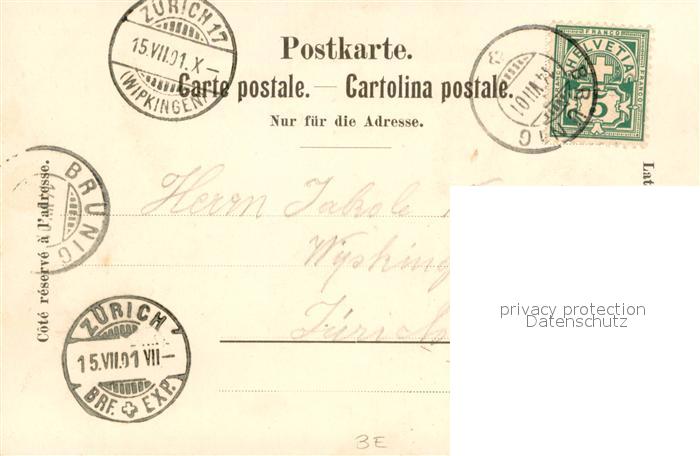 ZÜRICH 17
15.VII.01.X–
(WIPKINGEN)
Postkarte.
Carte postale. — Cartolina postale.
Nur für die Adresse.
FRANCO
HELVETIA
5
BRÜNIG
Côté réservé à l'adresse.
Lat
BRÜNIG
Herrn Jakob
Wipking
Zürich
ZÜRICH
15.VII.01 VII–
BRF. EXP.
privacy protection
Datenschutz
BE